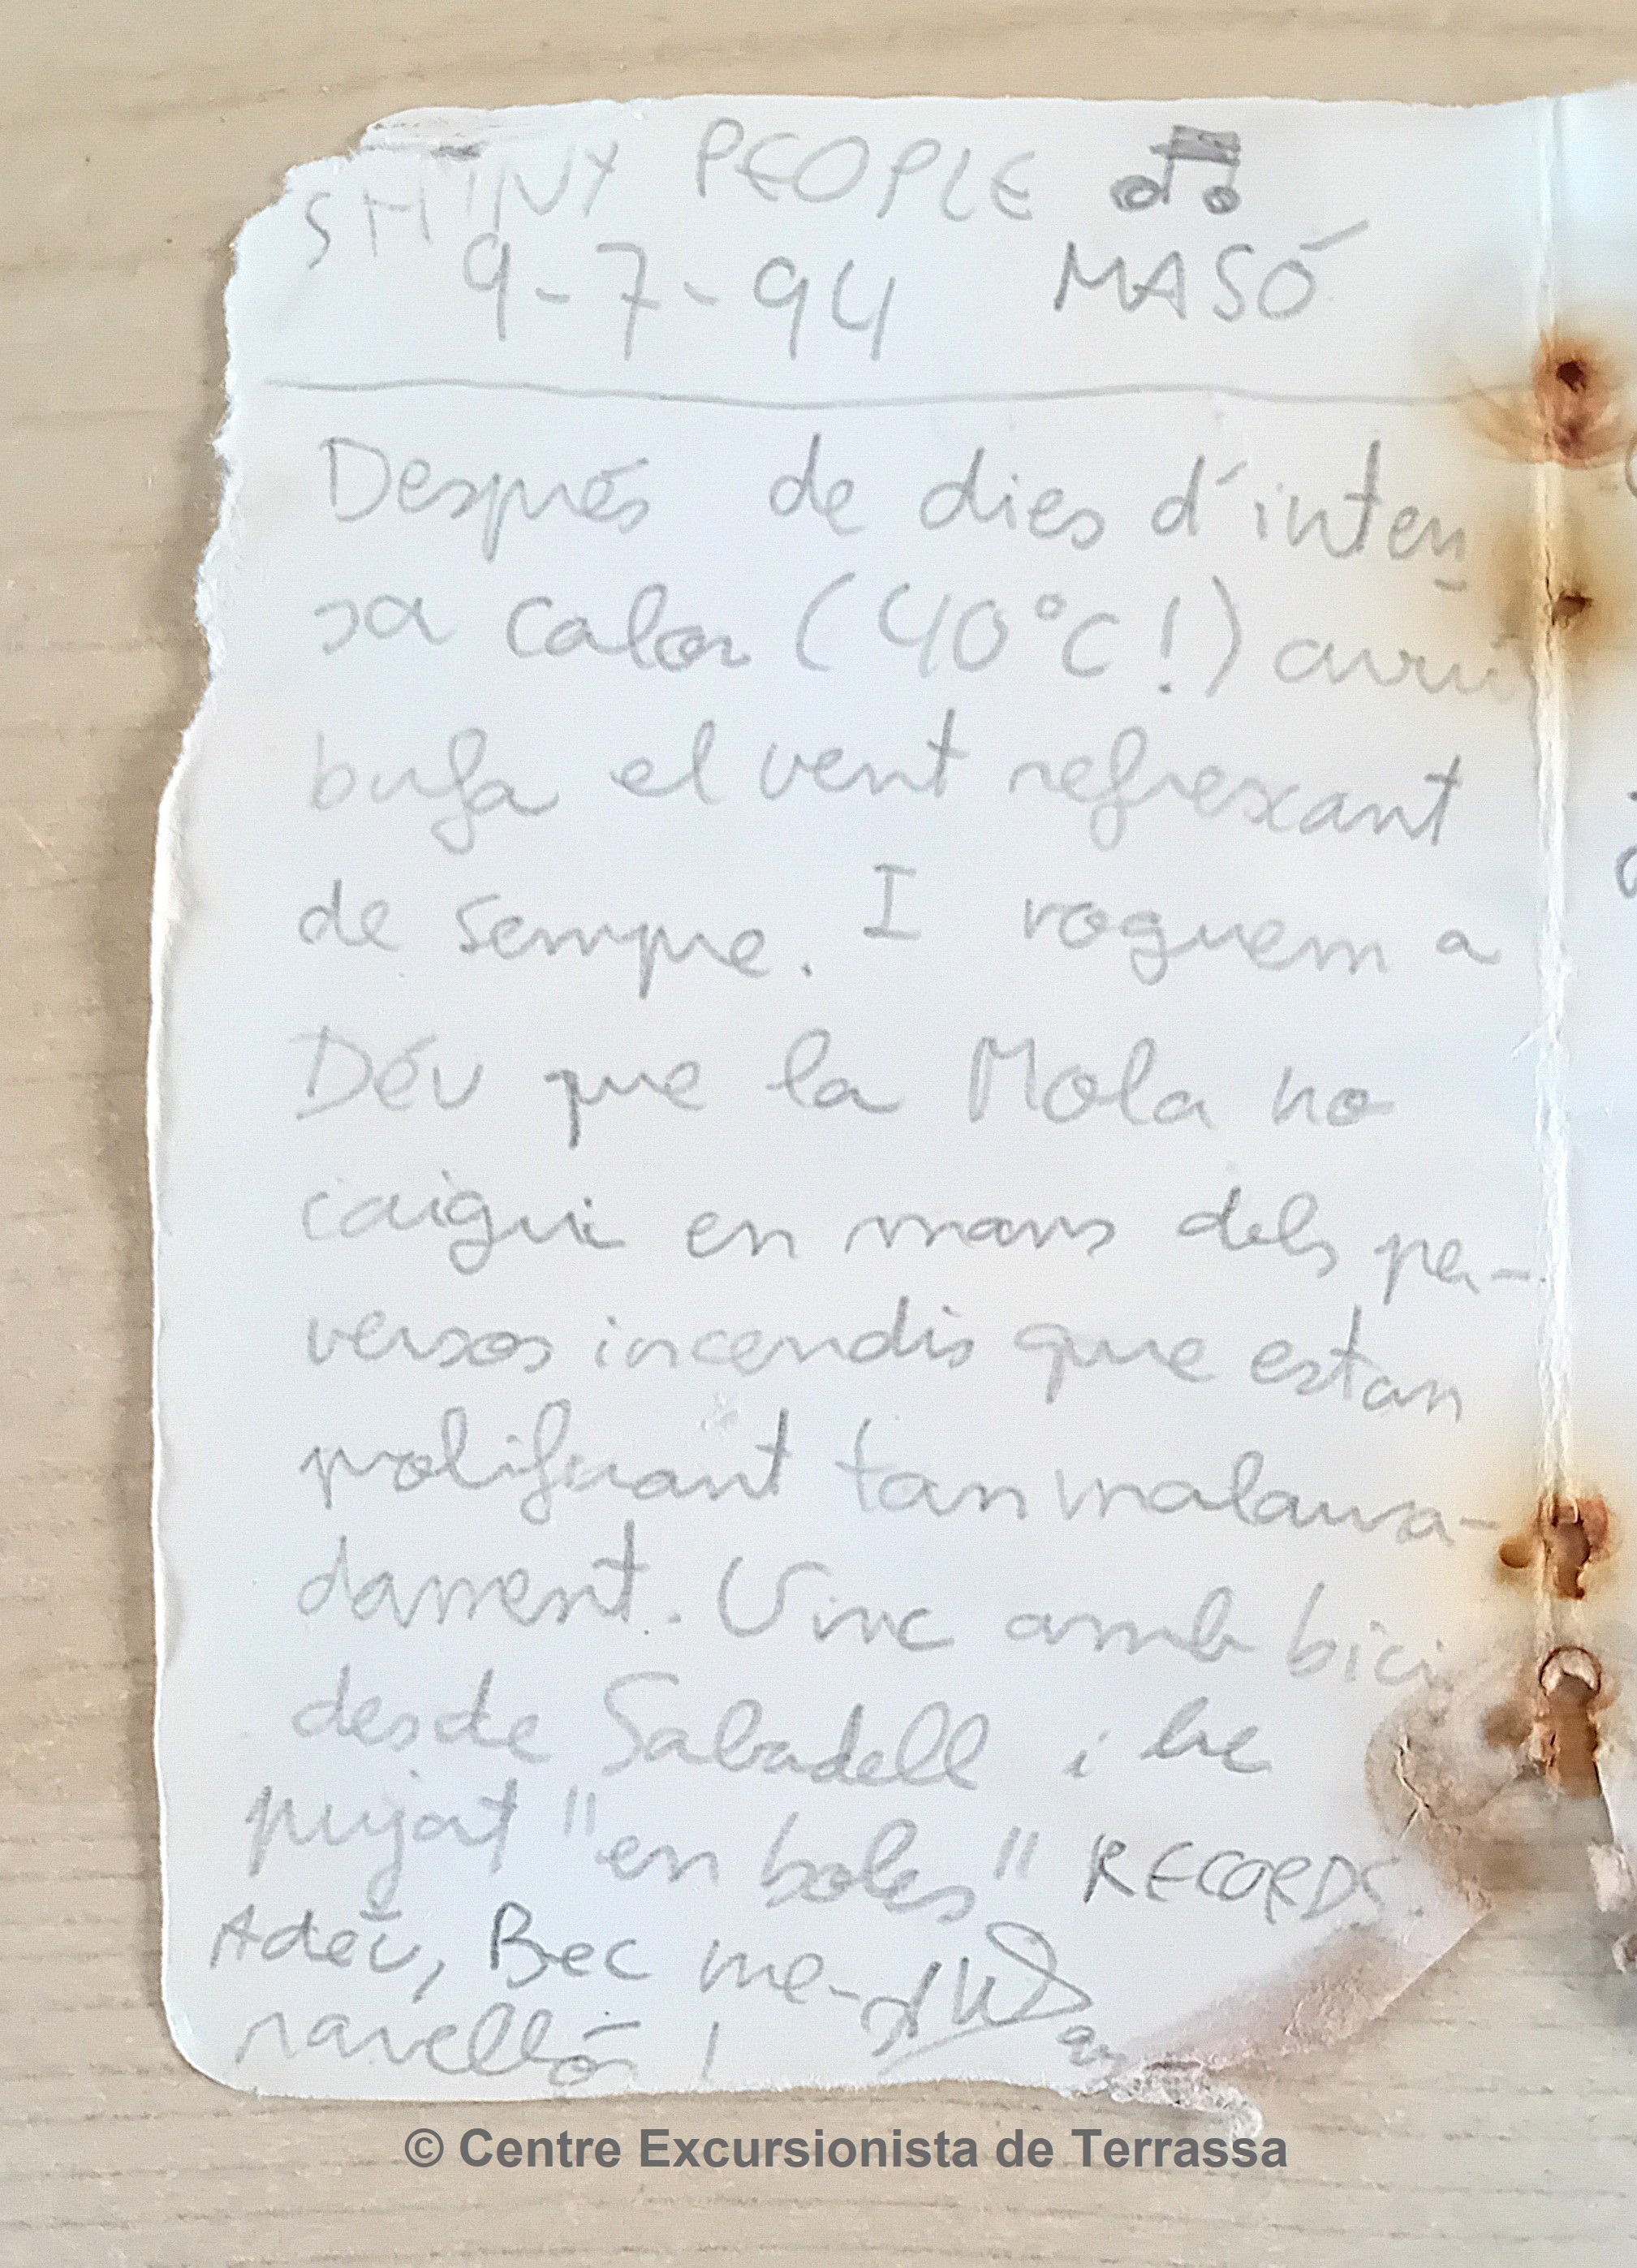 SHINY PEOPLE
9-7-94 MASÓ
Després de dies d'inten
sa calor (40°C!) avui
bufa el vent refrexant
de sempre. I roguem a
Déu que la Mola no
caigui en mans dels per-
versos incendis que estan
proliferant tan malaura-
dament. Vinc amb bici
desde Sabadell i he
pujat "en boles" RECORDS.
Adéu, Bec me-
ravellós !
© Centre Excursionista de Terrassa